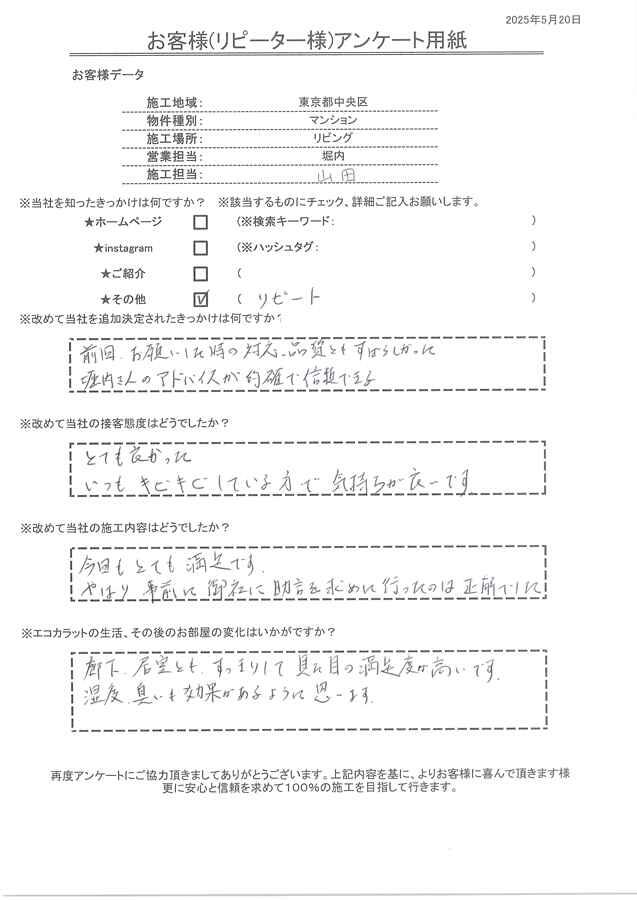 2025年5月20日
お客様(リピーター様)アンケート用紙
お客様データ
施工地域: 東京都中央区
物件種別: マンション
施工場所: リビング
営業担当: 堀内
施工担当: 山田
※当社を知ったきっかけは何ですか? ※該当するものにチェック、詳細ご記入お願いします。
★ホームページ ☐ (※検索キーワード: )
★instagram ☐ (※ハッシュタグ: )
★ご紹介 ☐ ( )
★その他 ☑ ( リピート )
※改めて当社を追加決定されたきっかけは何ですか?
前回、お願いした時の対応、品質ともすばらしかった
堀内さんのアドバイスが的確で信頼できる
※改めて当社の接客態度はどうでしたか?
とても良かった
いつもキビキビしている方で気持ちが良いです
※改めて当社の施工内容はどうでしたか?
今回もとても満足です。
やはり事前に御社に助言を求めに行ったのは正解でした
※エコカラットの生活、その後のお部屋の変化はいかがですか?
廊下、居室とも、すっきりして見た目の満足度が高いです。
湿度、臭いも効果があるように思います。
再度アンケートにご協力頂きましてありがとうございます。上記内容を基に、よりお客様に喜んで頂きます様
更に安心と信頼を求めて100%の施工を目指して行きます。